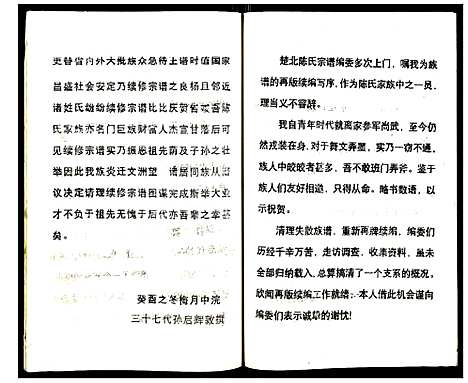 更替省内外大批族众急待上谱时值国家
昌盛社会安定乃续修宗谱之良机且邻近
诸姓氏纷纷续修宗谱比比
氏家族亦名门巨族财富人杰岂甘落后可
见续修宗谱实乃振惫祖先荫及子孙之壮
举因此我族炎迁文洲望 请居同族从
议决定请理续修宗谱图谋完成斯举大业
才不负于祖先无愧于后代亦吾辈之幸甚
矣。
癸酉之冬梅月中浣
三十七代孙启辉敦撰
楚北陈氏宗谱编委多次上门,嘱我为族
谱的再版续编写序,作为陈氏家族中之一员,
理当义不容辞。
我自青年时代就离家参军尚武,至今仍
然戎装在身,对于舞文弄墨,实乃一窍不通,
族人中皎皎者甚多,吾不敢班门弄斧。鉴于
族人们友好相邀,只得从命。略书数语,以
示祝贺。
清理失散族谱,重新再牌续编,编委们
历经千辛万苦,走访调查,收集资料,虽未
全部归纳载入,总算搞清了一个支系的概况。
欣闻再版续编工作就绪,本人借此机会谨向
编委们表示诚挚的谢忱!